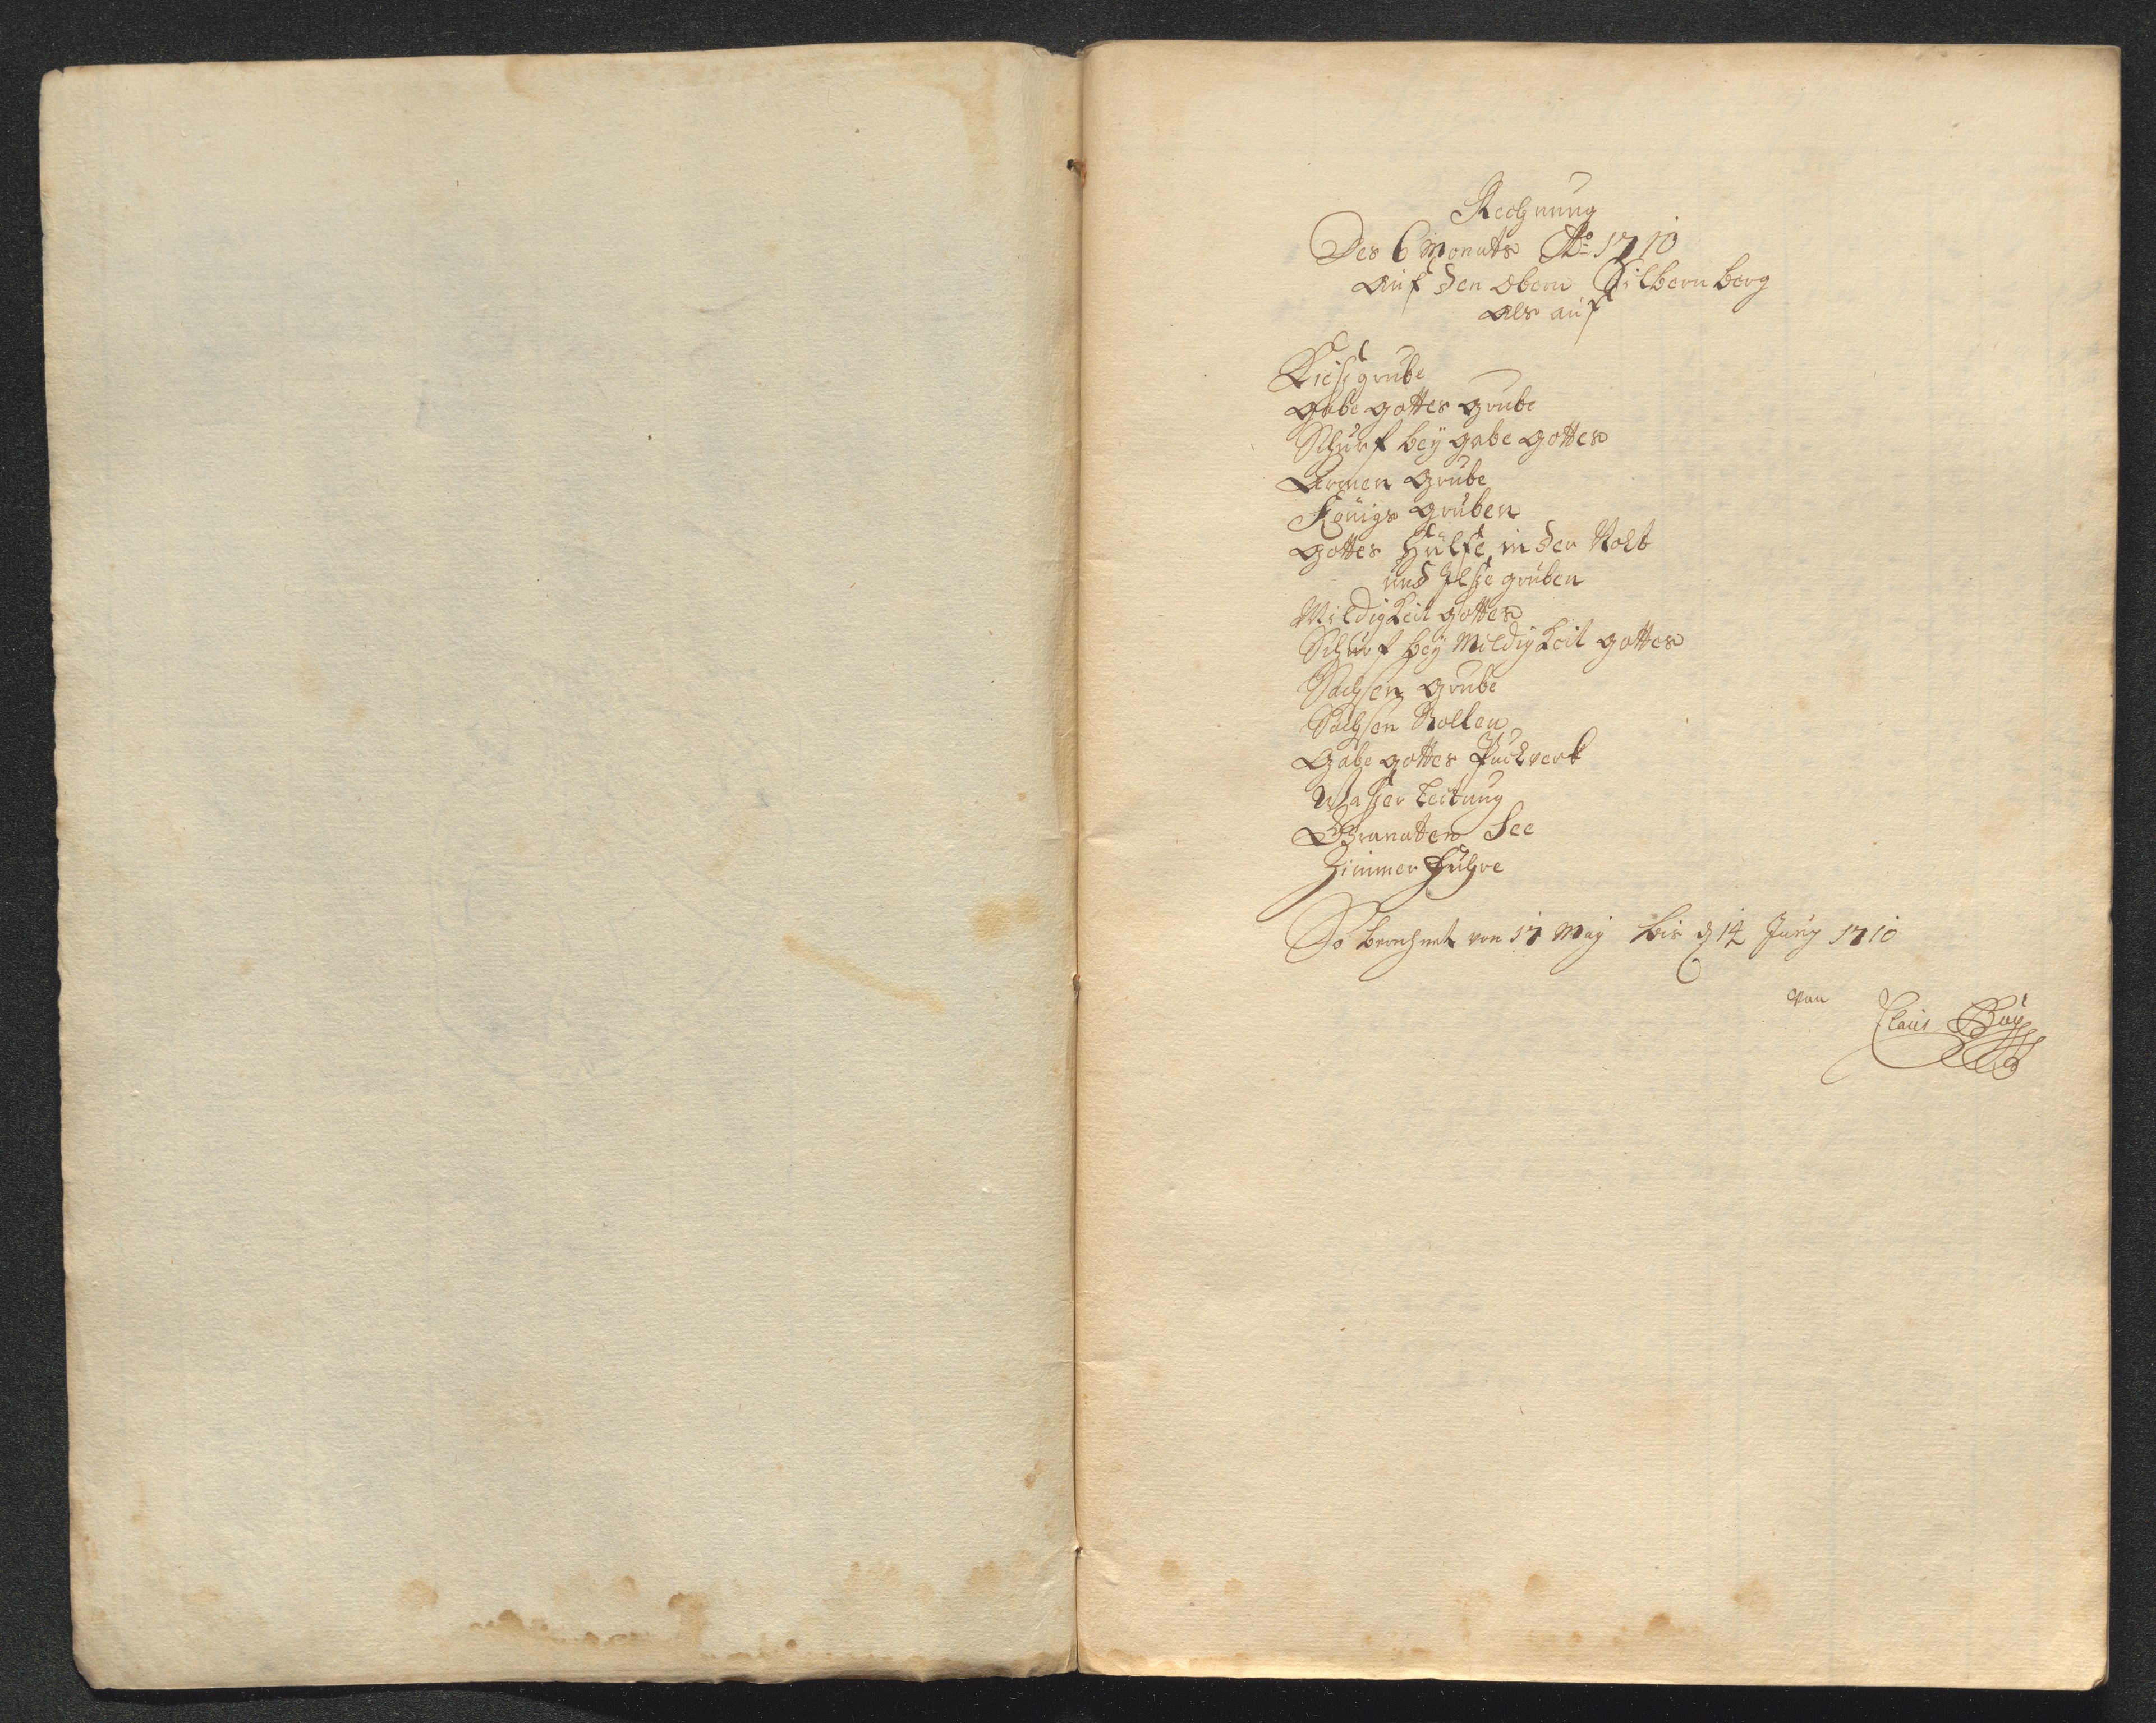 Rechnung
Des 6 Monats Ao 1710
auf den Obern Silbern berg
als auf
Kießgrube
gabe gottes grube
Schurf beÿ gabe gottes
Armen grube
Königs gruben
gottes Hülfe in der Noht
und Ilse gruben
Mildigkeit gottes
Schurf beÿ Mildigkeit gottes
Sachsen grube
Sachsen Stollen
Gabe gottes Puckwerk
Waßer Leitung
Granaten See
Zimmer Fuhre
So berechnet von 17 Maÿ bis d 14 Junÿ 1710
von
Claus